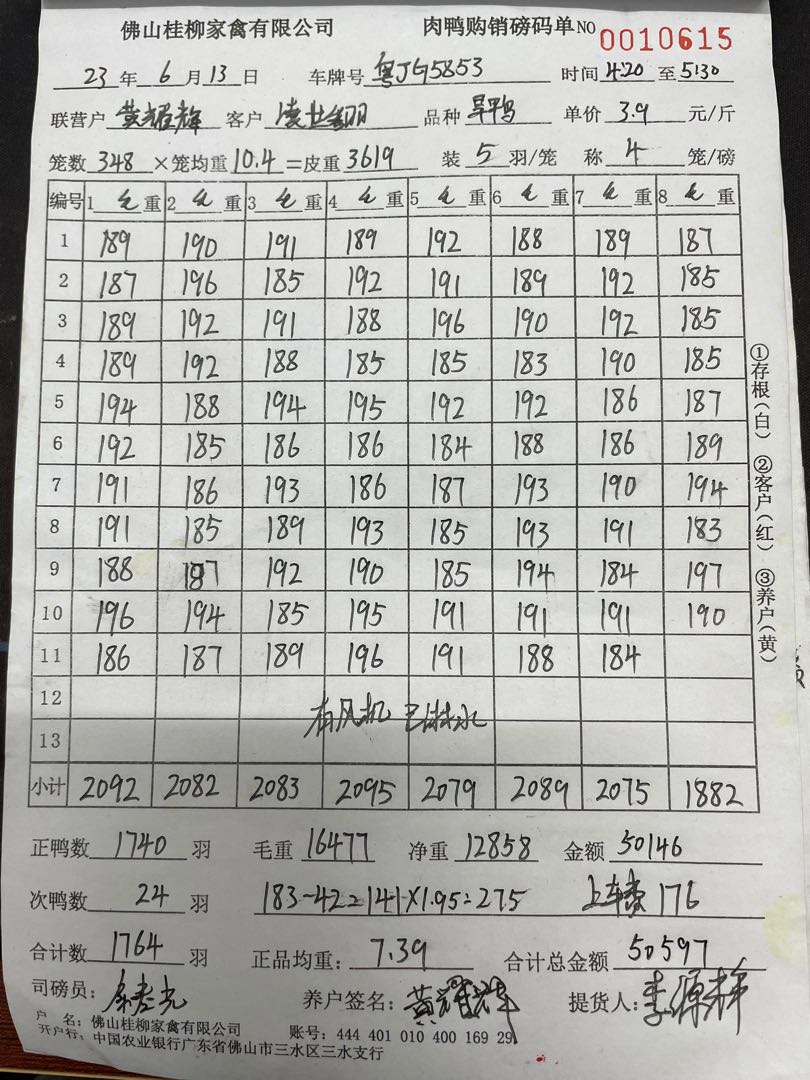 佛山桂柳家禽有限公司 肉鸭购销磅码单 NO 0010615
23 年 6 月 13 日 车牌号 粤JG5853 时间 4:20 至 5:30
联营户 黄耀辉 客户 品种 旱鸭 单价 3.9 元/斤
笼数 348 ×笼均重 10.4 =皮重 3619 装 5 羽/笼 称 4 笼/磅
编号 1 毛 重 2 毛 重 3 毛 重 4 毛 重 5 毛 重 6 毛 重 7 毛 重 8 重
1 189 190 191 189 192 188 189 187
2 187 196 185 192 191 189 192 185
3 189 192 191 188 196 190 192 185
4 189 192 188 185 185 183 190 185
5 194 188 194 195 192 192 186 187
6 192 185 186 186 184 188 186 189
7 191 186 193 186 187 193 190 194
8 191 185 189 193 185 193 191 183
9 188 187 192 190 185 194 184 197
10 196 194 185 195 191 191 191 190
11 186 187 189 196 191 188 184
12
有风机 已淋水
13
小计 2092 2082 2083 2095 2079 2089 2075 1882
正鸭数 1740 羽 毛重 16477 净重 12858 金额 50146
次鸭数 24 羽 183-42=141×1.95=275 上车费 176
合计数 1764 羽 正品均重: 7.39 合计总金额 50597
司磅员: 养户签名: 黄耀辉 提货人: 李源
户 名: 佛山桂柳家禽有限公司 账号: 444 401 010 400 169 29
开户行: 中国农业银行广东省佛山市三水区三水支行
①存根(白) ②客户(红) ③养户(黄)